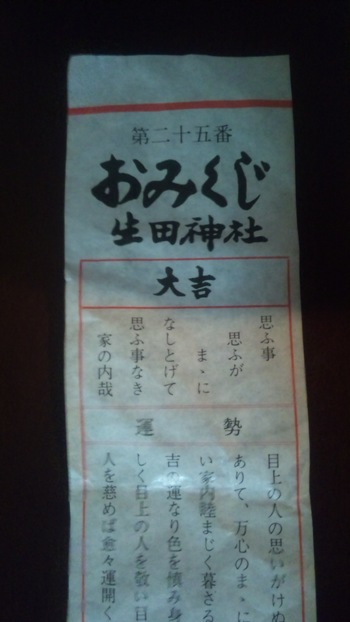 第二十五番
おみくじ
生田神社
大吉
思ふ事
思ふが
まゝに
なしとげて
思ふ事なき
家の内哉
運勢
目上の人の思いがけぬ
ありて、万心のまゝに
い家内睦まじく暮さる
吉の運なり色を慎み身
しく目上の人を敬い目
人を慈めば愈々運開く